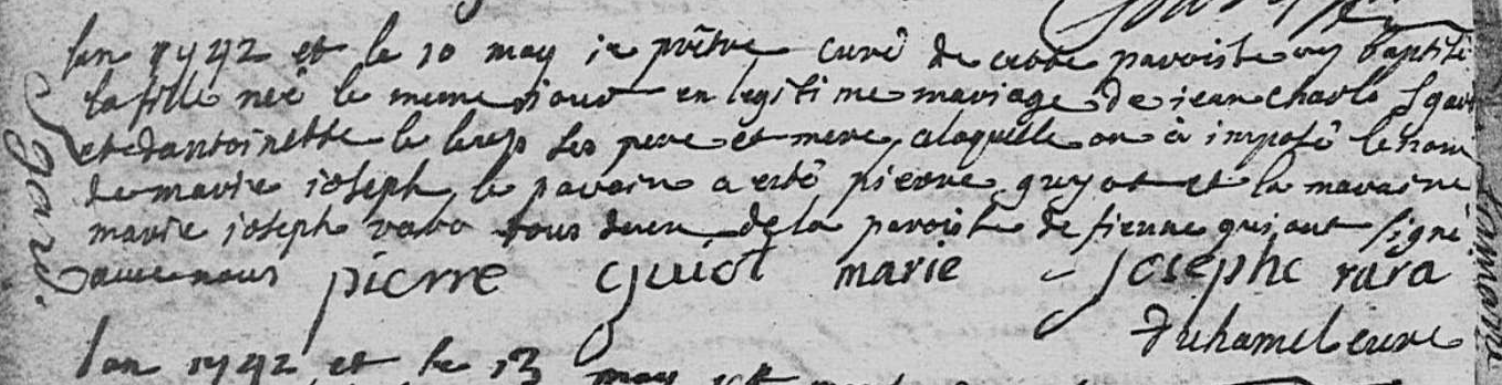 lan 1742 et le 10 may ie prêtre curé de cette paroisse ay baptisé
la fille neé le meme jour en legitime mariage de jean charle sgard
et dantoinette le ses pere et mere a laquelle on à imposé le nom
de marie joseph le parain a esté pierre guyot et la maraine
marie joseph rara tous deux de la paroisse de fienne qui ont signé
avec nous pierre Guiot marie Josephe rara
Duhamel curé
lan 1742 et le 13 may